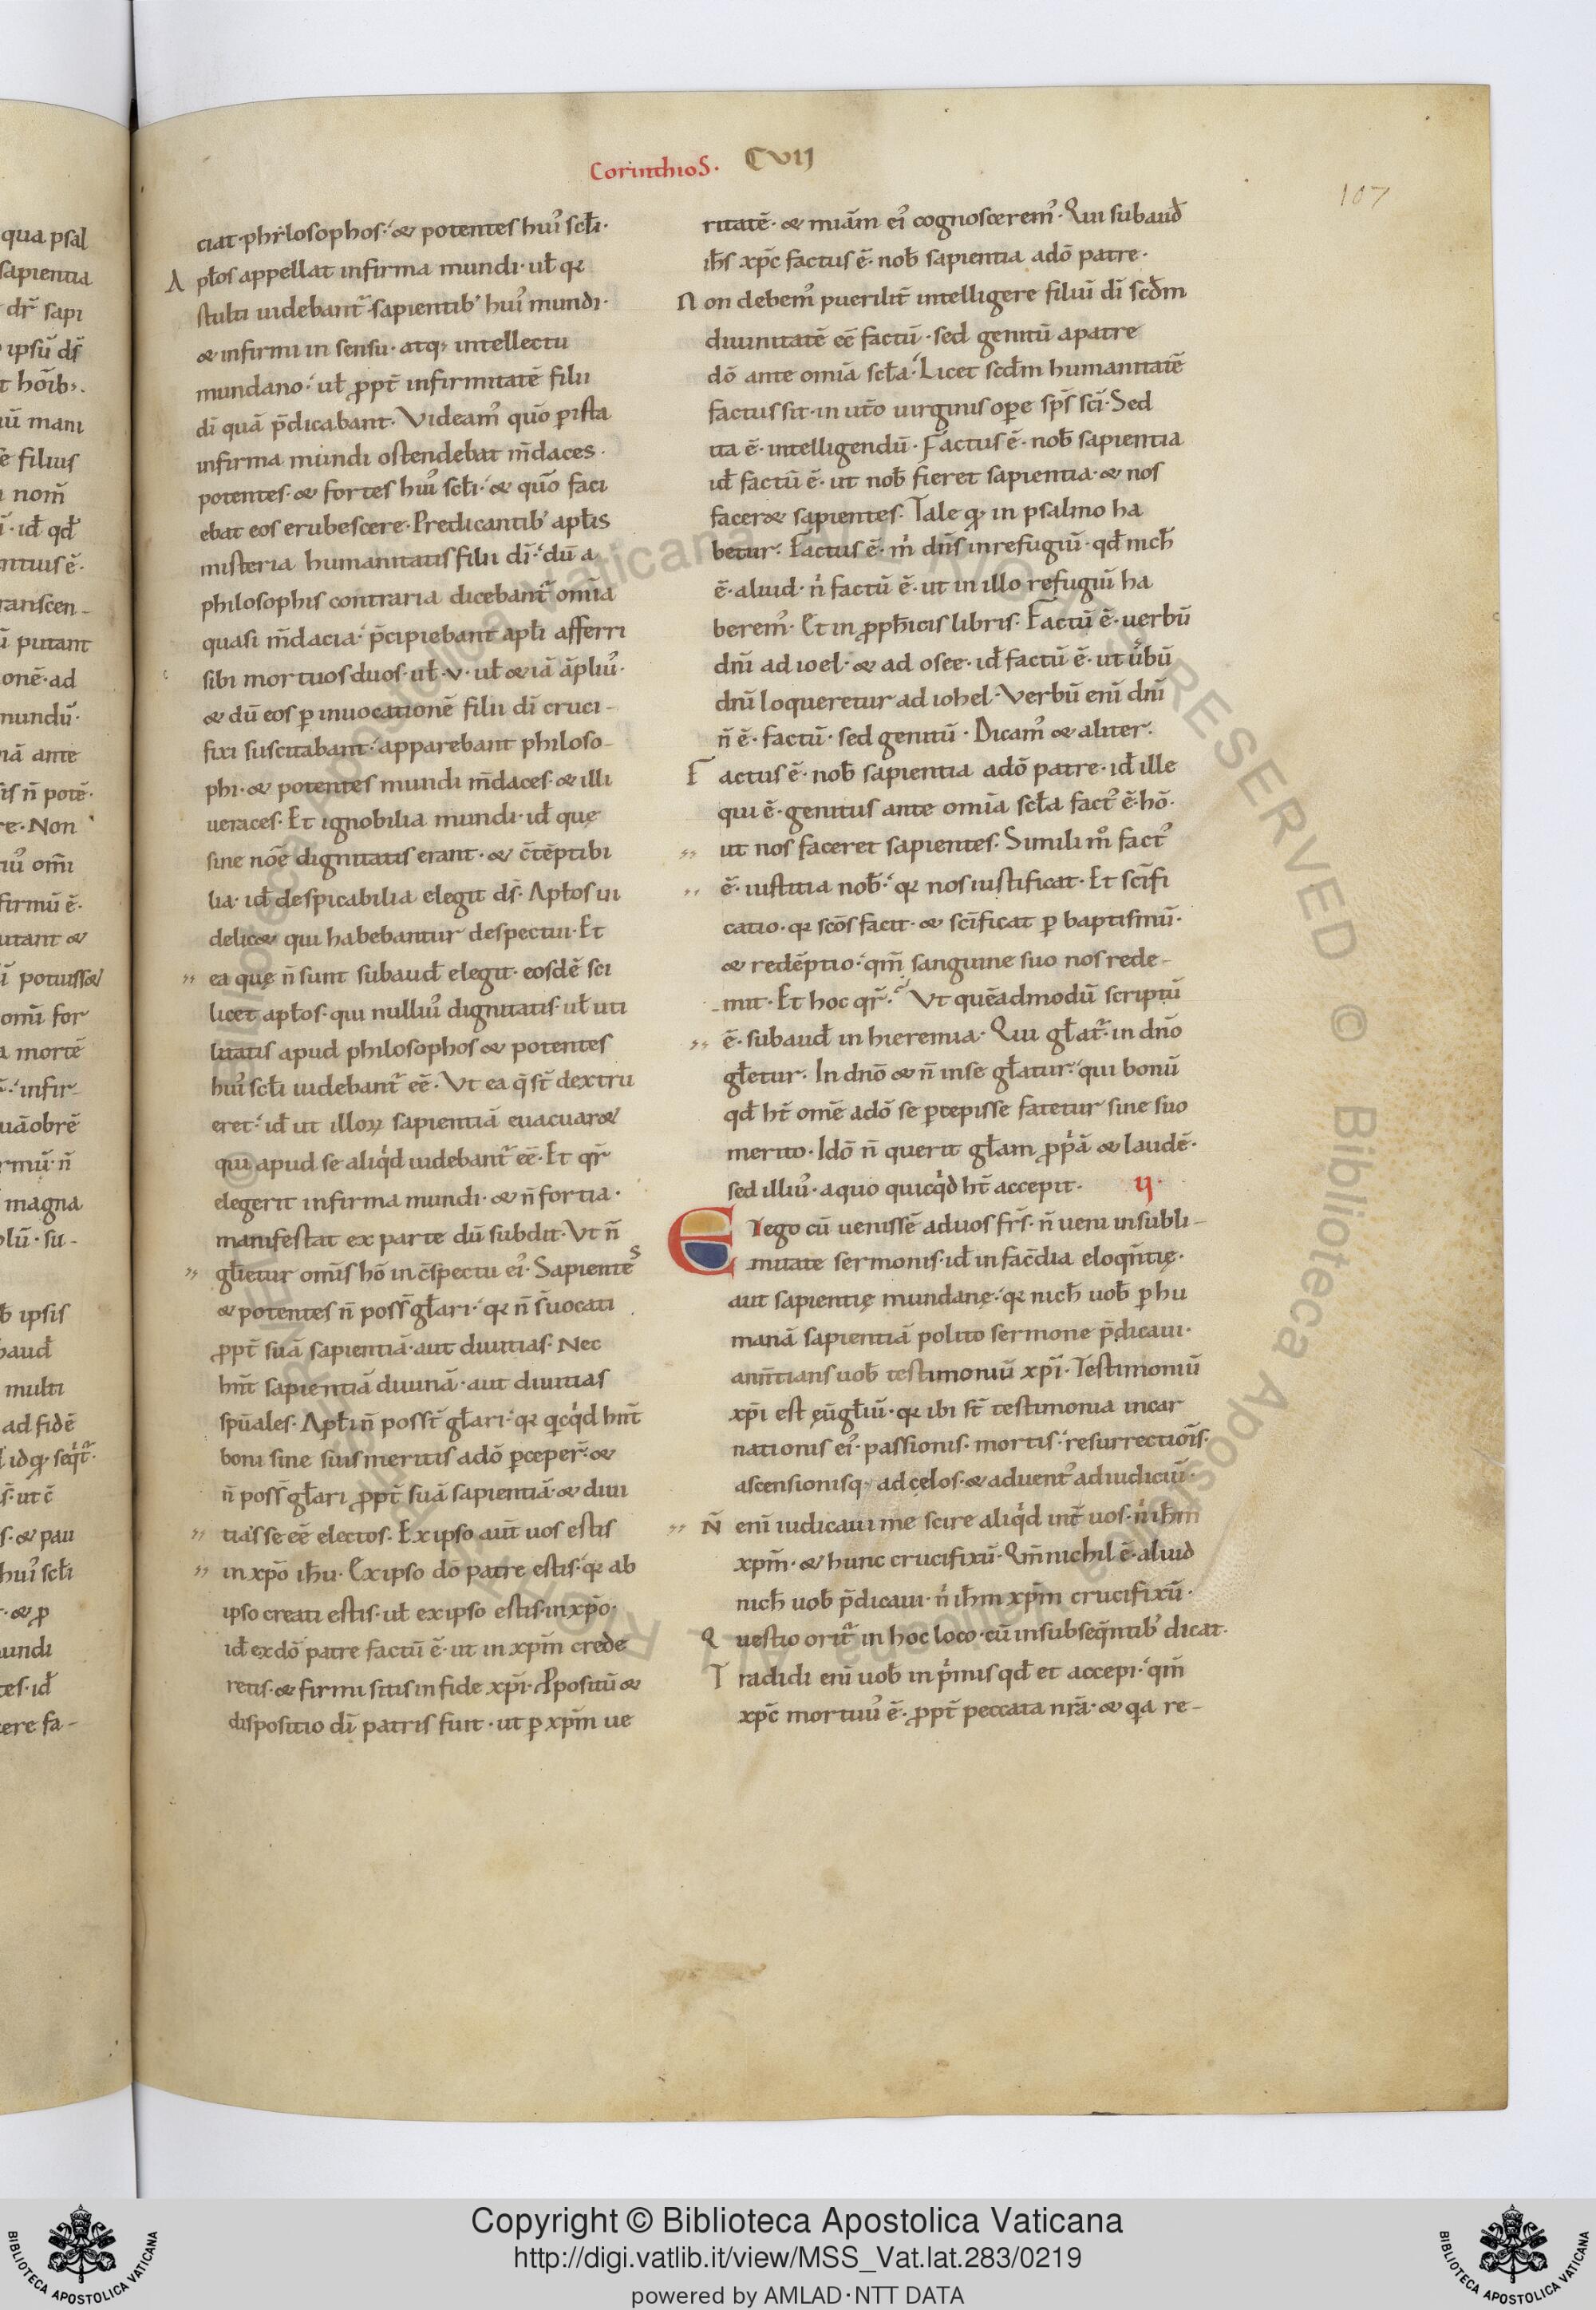 Corinthios. CVIJ
107
ciat·philosophos·⁊ potentes hui᷒ scƚi·
Apƚos appellat infirma mundi· uƚ qꝛ
stulti uidebant᷑·sapientib᷒ hui᷒ mundi·
& infirmi in sensu· atq; intellectu
mundano· uƚ ꝓpt̄ infirmitatē filii
dī quā p̄dicabant. Videam᷒ quō ꝑista
infirma mundi ostendebat m̄daces.
potentes· & fortes hui᷒ scƚi· & quō faci
ebat eos erubescere· Predicantib᷒ apƚis
misteria humanitatis filii dī· dū a
philosophis contraria dicebant᷑ om̄ia
quasi m̄dacia· p̄cipiebant apƚi afferri
sibi mortuos duos· uƚ·v·uƚ & iā āpliu᷒·
& dū eos ꝑ inuocationē filii dī cruci-
fixi suscitabant· apparebant philoso-
phi· & potentes mundi m̄daces· & illi
ueraces. Et ignobilia mundi· iđ quę
sine nōe dignitatis erant· & c̄tēptibi
lia· iđ despicabilia elegit ds̄. Apƚos ui
delic& qui habebantur despectui· Et
ea quę n̄ sunt subauđ elegit· eosdē sci
licet apƚos· qui nulliu᷒ dignitatis· uƚ uti
litatis apud philosophos & potentes
hui᷒ scƚi uidebant᷑ eē. Vt ea q̄ st̄ dextru
eret· iđ ut illoꝝ sapientiā euacuar&
qui apud se aliqͥd uidebant᷑ eē. Et qr̄
elegerit infirma mundi· & n̄ fortia·
manifestat ex parte dū subdit. Vt n̄
gƚietur om̄is hō in c̄spectu ei᷒· Sapientes
& potentes n̄ poss̄ gƚari· qꝛ n̄ s̄ uocati
ꝓpt̄ suā sapientiā· aut diuitias. Nec
hn̄t sapientiā diuinā· aut diuitias
spūales. Apƚi n̄ posst̄ gƚari· qꝛ qͥcqͥd hn̄t
boni sine suis meritis adō ꝑceper̄· &
n̄ poss̄ gƚari ꝓpt̄ suā sapientiā· & diui
tias se eē electos. Ex ipso aut̄ uos estis
in xp̄o ihu. Ex ipso dō patre estis· qꝛ ab
ipso creati estis· uƚ ex ipso estis·in xp̄o·
iđ ex dō patre factū ē· ut in xpm̄ crede
retis· & firmi sitis in fide xpī. Ꝓpositū &
dispositio dī patris fuit· ut ꝑ xpm̄ ue
ritatē· & miām ei᷒ cognoscerem᷒· Qui subauđ
ih̄s xp̄c factus ē· nob̄ sapientia adō patre·
Non debem᷒ puerilit̄ intelligere filiū dī scđm
diuinitatē eē factū· sed genitū apatre
dō ante omīa scƚa· Licet scđm humanitatē
factus sit· in ut̄o uirginis oꝑe sp̄s scī· Sed
ita ē· intelligendū· Factus ē· nob̄ sapientia
iđ factū ē· ut nob̄ fieret sapientia· & nos
facer& sapientes. Tale qͥ in psalmo ha
betur. Factus ē· mͥ dn̄s in refugiū· qđ nich̄
ē· aliud· nͥ factū ē· ut in illo refugiū ha
berem᷒· Et in ꝓph̄icis libris· Factū ē· uerbū
dnī ad ioel· & ad osee· iđ factū ē· ut ūbū
dnī loqueretur ad iohel· Verbū enī dnī
n̄ ē· factū· sed genitū· Dicam᷒ & aliter.
Factus ē· nob̄ sapientia adō patre· iđ ille
qui ē· genitus ante omīa scƚa fact᷒ ē· hō·
ut nos faceret sapientes. Simili mͦ fact᷒
ē· iustitia nob̄· qꝛ nos iustificat. Et scīfi
catio· qꝛ scōs facit· & scīficat ꝑ baptismū·
& redēptio· qm̄ sanguine suo nos rede-
mit· Et hoc qr̄· Vt quēadmodū scriptū
ē· subauđ in hieremia· Qui gƚat᷑· in dnō
gƚetur· In dnō & n̄ in se gƚatur· qui bonū
qđ ht̄ omē adō se ꝑcepisse fatetur sine suo
merito· Idō n̄ querit gƚam ꝓpͥā & laudē·
sed illiu᷒· a quo quicqͥd ht̄ accepit. IJ·
ET ego cū uenissē ad uos frs̄· n̄ ueni in subli-
mitate sermonis· iđ in fac̄dia eloqn̄tię·
aut sapientię mundanę· qꝛ nich̄ uob̄ ꝑ hu
manā sapientiā polito sermone p̄dicaui·
ann̄tians uob̄ testimoniū xpī· Testimoniū
xpī est eūgƚiū· qꝛ ibi st̄ testimonia incar
nationis ei᷒· passionis· mortis· resurrectiōis·
ascensionisq· ad cęlos· & aduent᷒ ad iudiciū·
N̄ enī iudicaui me scire aliqͥd int̄ uos· nͥ ihm̄
xpm̄· & hunc crucifixū· Qm̄ nichil ē· aliud
nich̄ uob̄ p̄dicaui· nͥ ihm̄ xpm̄ crucifixū·
Questio orit᷑ in hoc loco· cū in subseq̄ntib᷒ dicat·
Tradidi enī uob̄ in pͥmis qđ et accepi· qm̄
xpc̄ mortuu᷒ ē· ꝓpt̄ peccata nrā· & qͣ re-
Copyright © Biblioteca Apostolica Vaticana
http://digi.vatlib.it/view/MSS_Vat.lat.283/0219
powered by AMLAD·NTT DATA